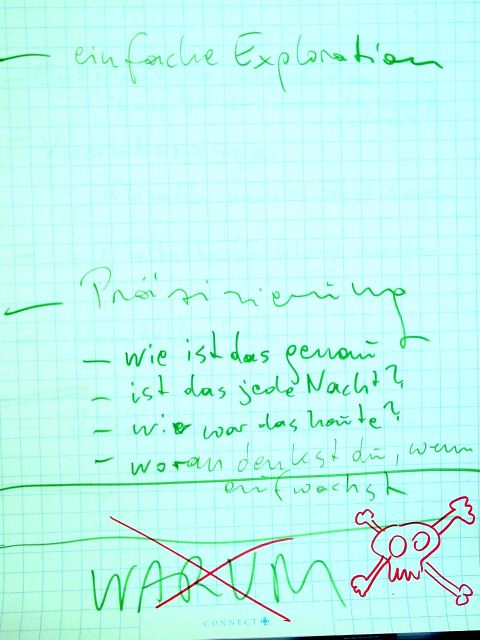 – einfache Exploration
– Präzisierung
– wie ist das genau
– ist das jede Nacht?
– wie war das heute?
– woran denkst du, wenn
aufwachst
WARUM
CONNECT